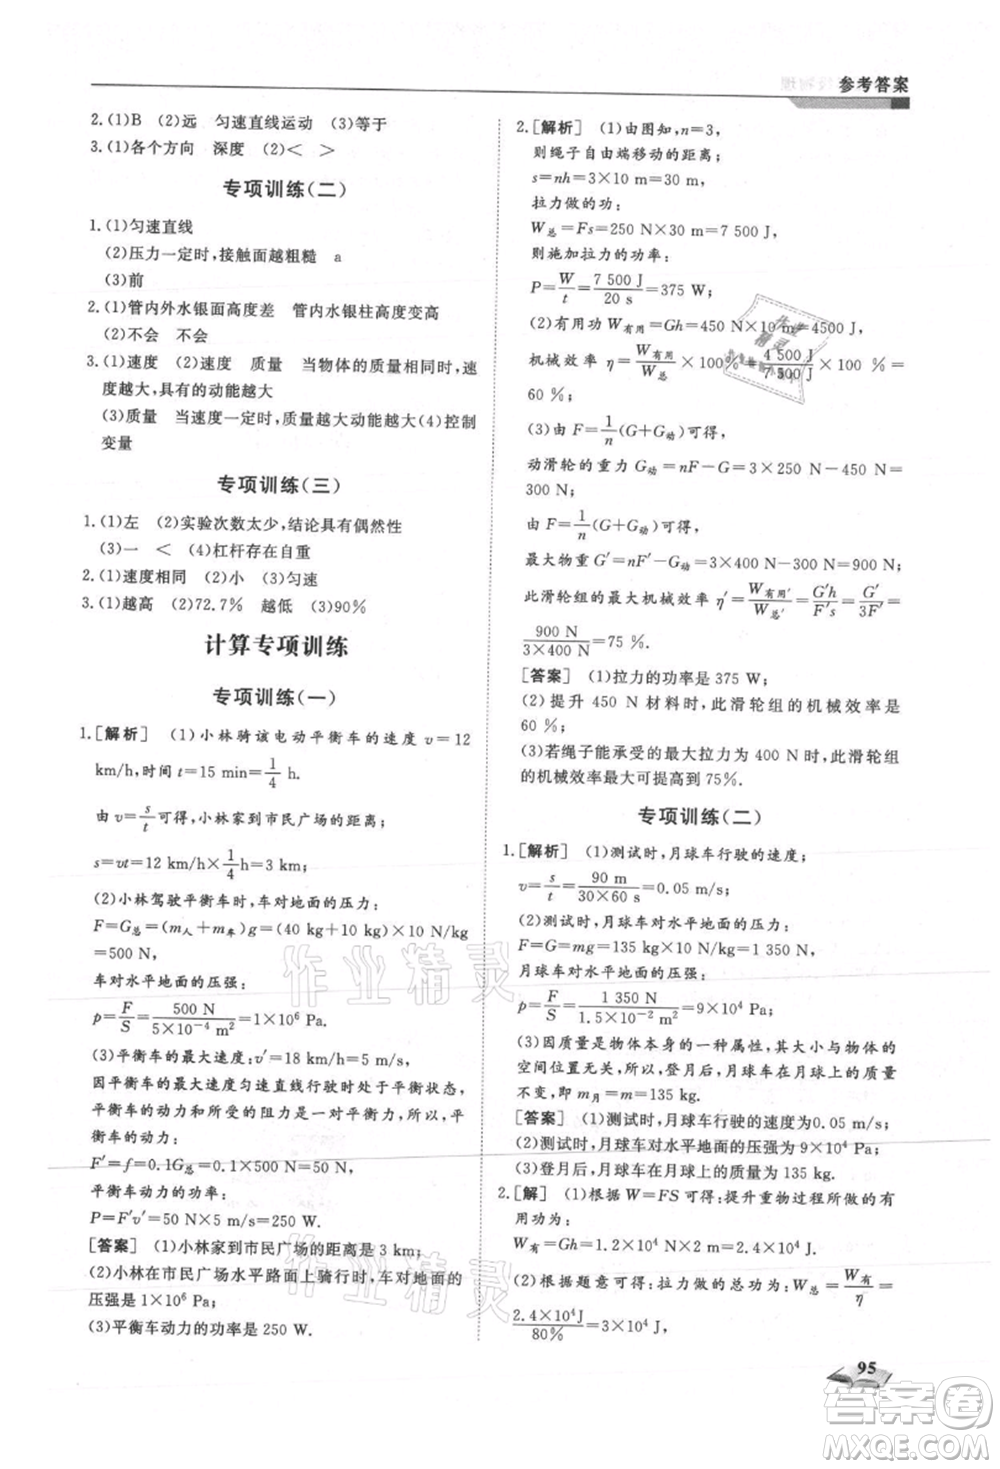 参考答案
2.(1)B　(2)远　匀速直线运动　(3)等于
3.(1)各个方向　深度　(2)＜　＞
专项训练(二)
1.(1)匀速直线
(2)压力一定时,接触面越粗糙　a
(3)前
2.(1)管内外水银面高度差　管内水银柱高度变高
(2)不会　不会
3.(1)速度　(2)速度　质量　当物体的质量相同时,速
度越大,具有的动能越大
(3)质量　当速度一定时,质量越大动能越大(4)控制
变量
专项训练(三)
1.(1)左　(2)实验次数太少,结论具有偶然性
(3)一　＜　(4)杠杆存在自重
2.(1)速度相同　(2)小　(3)匀速
3.(1)越高　(2)72.7%　越低　(3)90%
计算专项训练
专项训练(一)
1.[解析]　(1)小林骑该电动平衡车的速度 v=12
km/h,时间 t=15 min=1/4 h.
由 v=s/t 可得,小林家到市民广场的距离:
s=vt=12 km/h×1/4 h=3 km;
(2)小林驾驶平衡车时,车对地面的压力:
F=G总=(m人+m车)g=(40 kg+10 kg)×10 N/kg
=500 N,
车对水平地面的压强:
p=F/S=500 N/5×10⁻⁴ m²=1×10⁶ Pa.
(3)平衡车的最大速度:v′=18 km/h=5 m/s,
因平衡车的最大速度匀速直线行驶时处于平衡状态,
平衡车的动力和所受的阻力是一对平衡力,所以,平
衡车的动力:
F′=f=0.1G总=0.1×500 N=50 N,
平衡车动力的功率:
P=F′v′=50 N×5 m/s=250 W.
[答案]　(1)小林家到市民广场的距离是 3 km;
(2)小林在市民广场水平路面上骑行时,车对地面的
压强是 1×10⁶ Pa;
(3)平衡车动力的功率是 250 W.
2.[解析]　(1)由图知,n=3,
则绳子自由端移动的距离:
s=nh=3×10 m=30 m,
拉力做的功:
W总=Fs=250 N×30 m=7 500 J,
则施加拉力的功率:
P=W/t=7 500 J/20 s=375 W;
(2)有用功 W有用=Gh=450 N×10 m=4500 J,
机械效率 η=W有用/W总×100%=4 500 J/7 500 J×100 %=
60 %;
(3)由 F=1/n(G+G动)可得,
动滑轮的重力 G动=nF-G=3×250 N-450 N=
300 N,
由 F=1/n(G+G动)可得,
最大物重 G′=nF′-G动=3×400 N-300 N=900 N;
此滑轮组的最大机械效率 η′=W有用′/W总′=G′h/F′s=G′/3F′=
900 N/3×400 N=75 %.
[答案]　(1)拉力的功率是 375 W;
(2)提升 450 N 材料时,此滑轮组的机械效率是
60 %;
(3)若绳子能承受的最大拉力为 400 N 时,此滑轮组
的机械效率最大可提高到 75%.
专项训练(二)
1.[解析]　(1)测试时,月球车行驶的速度:
v=s/t=90 m/30×60 s=0.05 m/s;
(2)测试时,月球车对水平地面的压力:
F=G=mg=135 kg×10 N/kg=1 350 N,
月球车对水平地面的压强:
p=F/S=1 350 N/1.5×10⁻² m²=9×10⁴ Pa;
(3)因质量是物体本身的一种属性,其大小与物体的
空间位置无关,所以,登月后,月球车的质量
不变,即 m月=m=135 kg.
[答案]　(1)测试时,月球车行驶的速度为0.05 m/s;
(2)测试时,月球车对水平地面的压强为 9×10⁴ Pa;
(3)登月后,月球车的质量为 135 kg.
2.[解]　(1)根据 W=FS 可得:提升重物过程所做的有
用功为:
W有=Gh=1.2×10⁴ N×2 m=2.4×10⁴ J,
(2)根据题意可得:拉力做的总功为:W总=W有/η=
2.4×10⁴J/80%=3×10⁴ J,
95
作业精灵
作业精灵
作业
精灵
答案卷
MXQE.COM